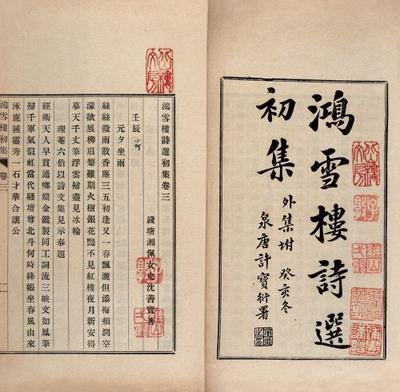 鴻雪樓詩選
初集
外集坿 癸亥冬
泉唐許寶衍署
鴻雪樓詩選初集卷三
錢塘湘佩女史沈善寶著
壬辰
元夕坐雨
絲絲微雨散香塵三五初逢又一春飄灑但添梅頰潤空
濛欲展柳眉顰難期火樹銀花豔不見紅樓夜月新安得
摹天千丈筆浮雲掃盡見冰輪
理菴六伯以詩文集見示奉題
經術天人早貫通鄉嬛金鑰製同工詞流三峽文如鳳筆
掃千軍氣似虹當代騷壇尊北斗何時絳帳坐春風由來
涿鹿鍾靈秀一石才華合讓公
鴻雪樓初集 卷三